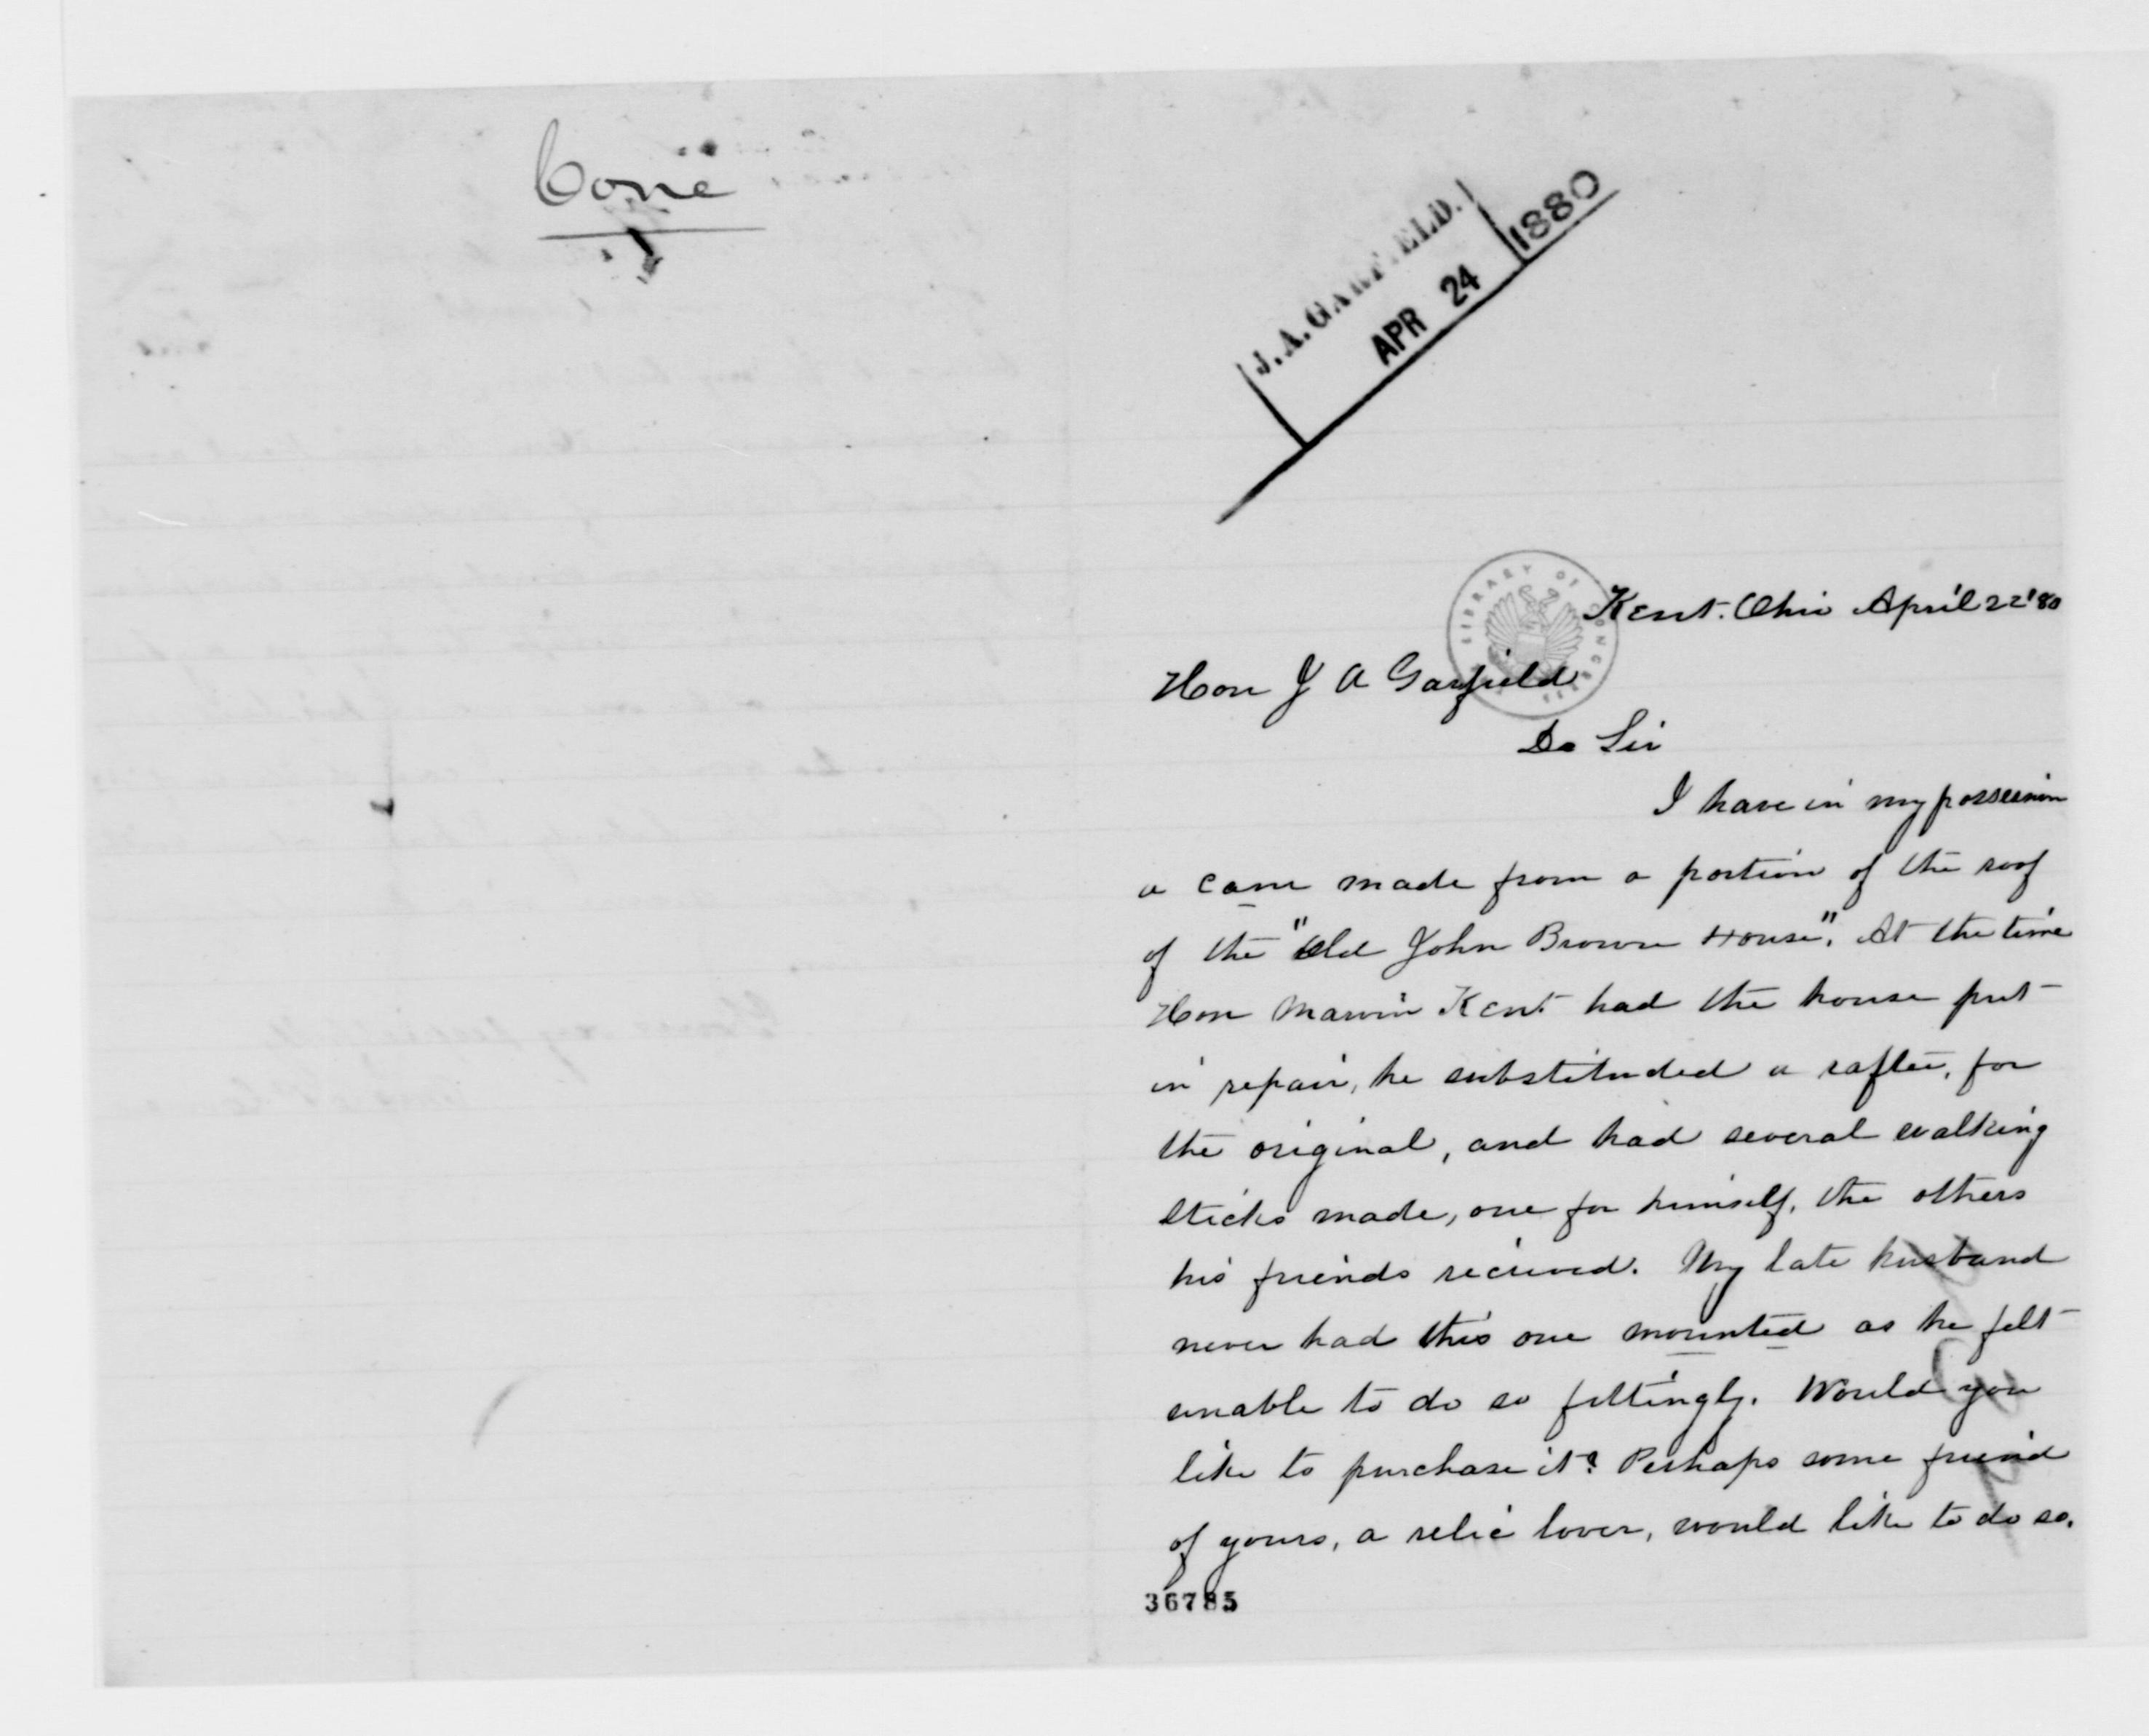 J. A. GARFIELD.
APR 24 1880
LIBRARY OF CONGRESS
Kent. Ohio April 22 '80
Hon J A Garfield
Dr Sir
I have in my possession
a cane made from a portion of the roof
of the "Old John Brown House". At the time
Hon Marvin Kent had the house put
in repair, he substituded a rafter, for
the original, and had several walking
sticks made, one for himself, the others
his friends recieved. My late husband
never had this one mounted as he felt
unable to do so fittingly. Would you
like to purchase it? Perhaps some friend
of yours, a relic lover, would like to do so.
36785